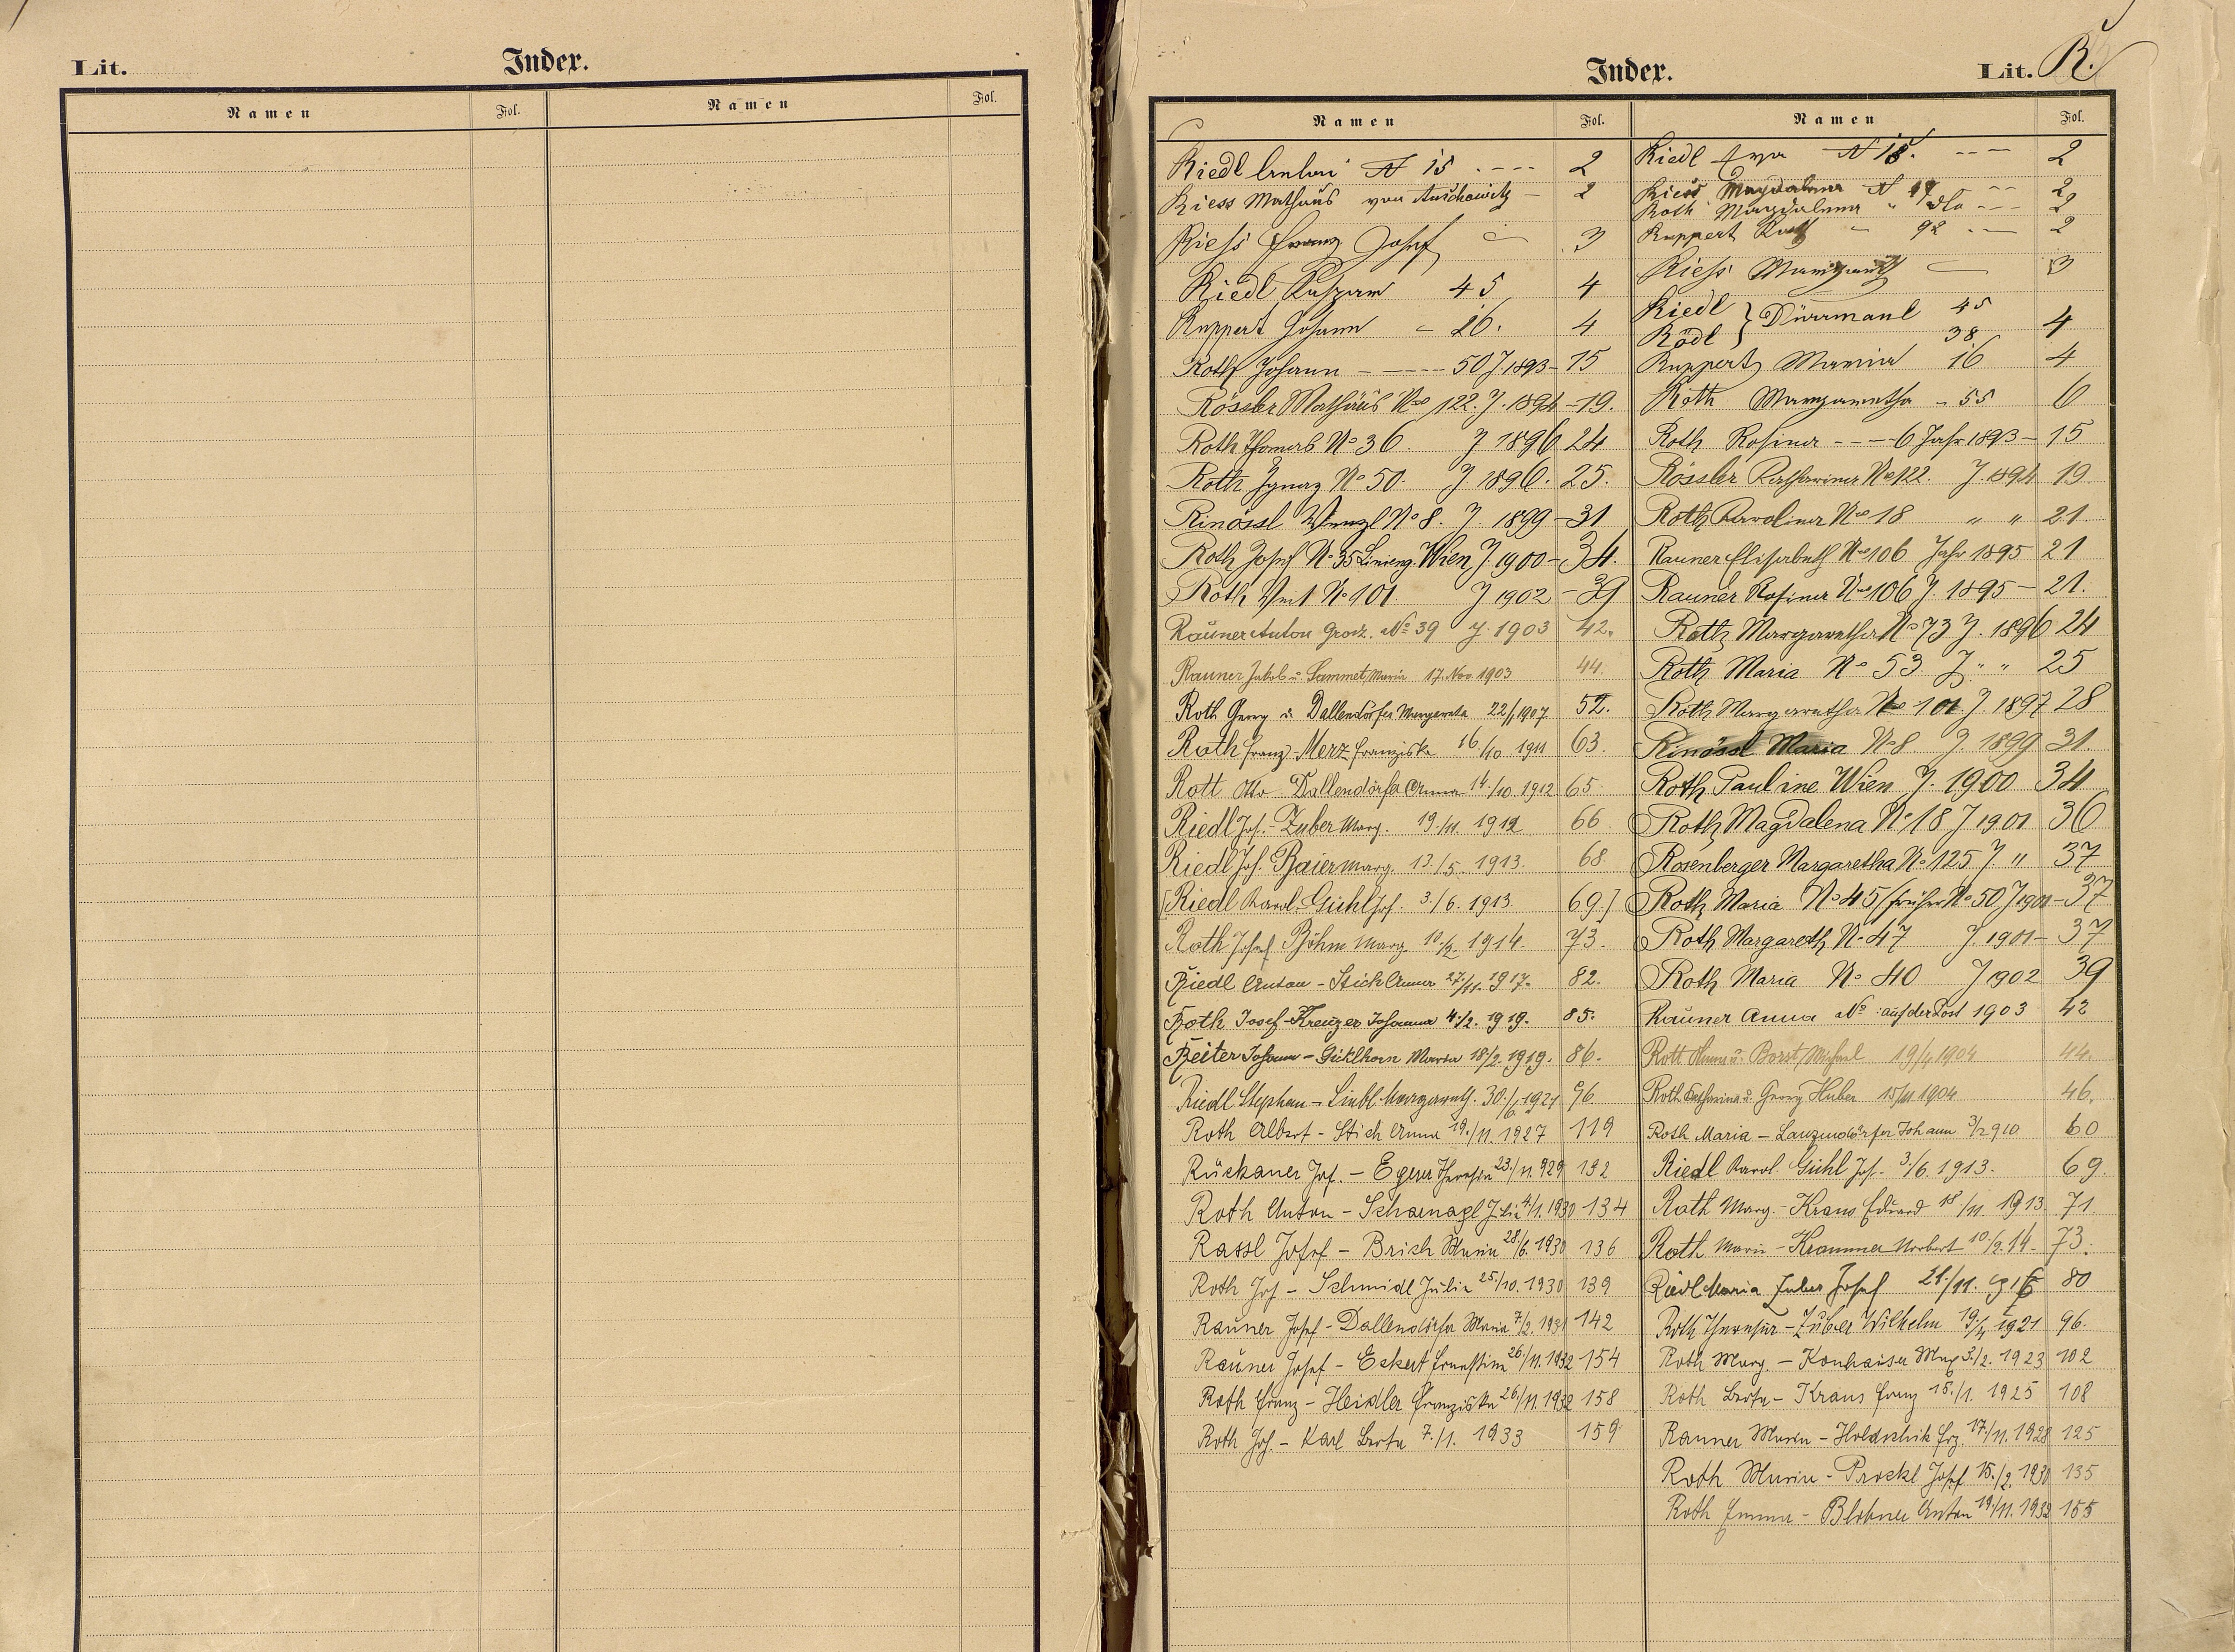 Lit.
Index.
Namen
Fol.
Namen
Fol.
Index.
Lit. R.
Namen
Fol.
Riedl N 15 2
Riess Mathäus von Auschowitz 2
Riess Franz Josef 3
Riedl 45 4
Ruppert Johann 26. 4
Roth Johann 50 J. 1893 15
Rössler Mathäus No 122. J. 1894 19.
Roth Thomas No 36. J 1896 24
Roth Ignaz No 50. J 1896. 25.
Rinössl Wenzl No 8. J. 1899 31
Roth Josef No 35 Linieng. Wien J. 1900 34.
Roth No 101. J 1902 39
Rauner Anton No 39 J. 1903 42.
Rauner Jakob u. Sammet, Maria 17. Nov. 1903 44.
Roth Georg u. Dallendörfer Margareta 22/1 1907 52.
Roth Franz - Merz Franziska 16/10 1911 63.
Rott Otto - Dallendörfer Anna 14/10. 1912 65.
Riedl Jos. - Zuber Marg. 19/11. 1912 66
Riedl Jos. Baier Marg. 13./5. 1913. 68.
[Riedl Karol. Gichl Jos. 3./6. 1913. 69.]
Roth Josef Böhm Marg. 10./2. 1914. 73.
Riedl Anton - Stich Anna 27/11. 1917. 82.
Roth Josef - Kreuzer Johanna 4./2. 1919. 85.
Reiter Johann - Gicklhorn Maria 18/2. 1919. 86.
Riedl Stephan - Liebl Margareth. 30./6. 1921 96.
Roth Albert - Stich Anna 19./11. 1927 119
Rückauer Jos. - Egerer Theresia 23./11. 929 132
Roth Anton - Scharnagl Julia 4/1. 1930 134
Rassl Josef - Brich Maria 28./6. 1930 136
Roth Jos - Schmidl Julia 25./10. 1930 139
Rauner Josef - Dallendörfer Maria 7/2. 1931 142
Rauner Josef - Eckert Ernestine 26./11. 1932 154
Roth Franz - Heidler Franziska 26./11. 1932 158
Roth Jos. - Karl Berta 7./1. 1933 159
Namen
Fol.
Riedl Eva N 18. 2
Riess Magdalena N 2
Roth Magdalena " dto 2
Ruppert 92 2
Riess Margareth 3
Riedl } Dürrmaul 45
Rödl 38 4
Ruppert Maria 16 4
Roth Margaretha 55 6
Roth Rosina 6 Jahr 1893 15
Rössler Katharina No 122. J. 1894 19.
Roth Karolina No 18 " " 21.
Rauner Elisabeth No 106 Jahr 1895 21
Rauner Rosina No 106 J. 1895 21.
Roth Margaretha No 73 J. 1896 24
Roth Maria No 53. J. " " 25
Roth Margaretha No 101. J. 1897 28
Rinössl Maria No 8 J. 1899 31.
Roth Pauline Wien J. 1900 34
Roth Magdalena No 18 J 1901 36
Rosenberger Margaretha No 125 J. " 37
Roth Maria No 45 (früher No 50 J 1901 37
Roth Margareth No 47 J. 1901 37
Roth Maria No 40 J 1902 39
Rauner Anna No : auf der Post 1903 42
Rott Anna u. Borst, Michael 19/4 1904 44.
Roth Katharina u. Georg Huber 15/11 1904 46.
Roth Maria - Lanzendörfer Johann 3/2 910 60
Riedl Karol. Gichl Jos. 3./6. 1913. 69.
Roth Marg. - Kraus Eduard 18/11. 1913. 71.
Roth Marie - Krammer Norbert 10./2. 14. 73.
Riedl Maria Zuber Josef 21./11. 916 80
Roth Theresia - Zuber Wilhelm 19./4 1921 96.
Roth Marg. - Konhäuser Max 3./2. 1923 102
Roth Berta - Kraus Franz 15./1. 1925 108
Rauner Maria - Holdschik Frz. 17./11. 1928 125
Roth Maria - Prockl Josef 15./2. 1930 135
Roth Emma - Anton 19./11. 1932 155